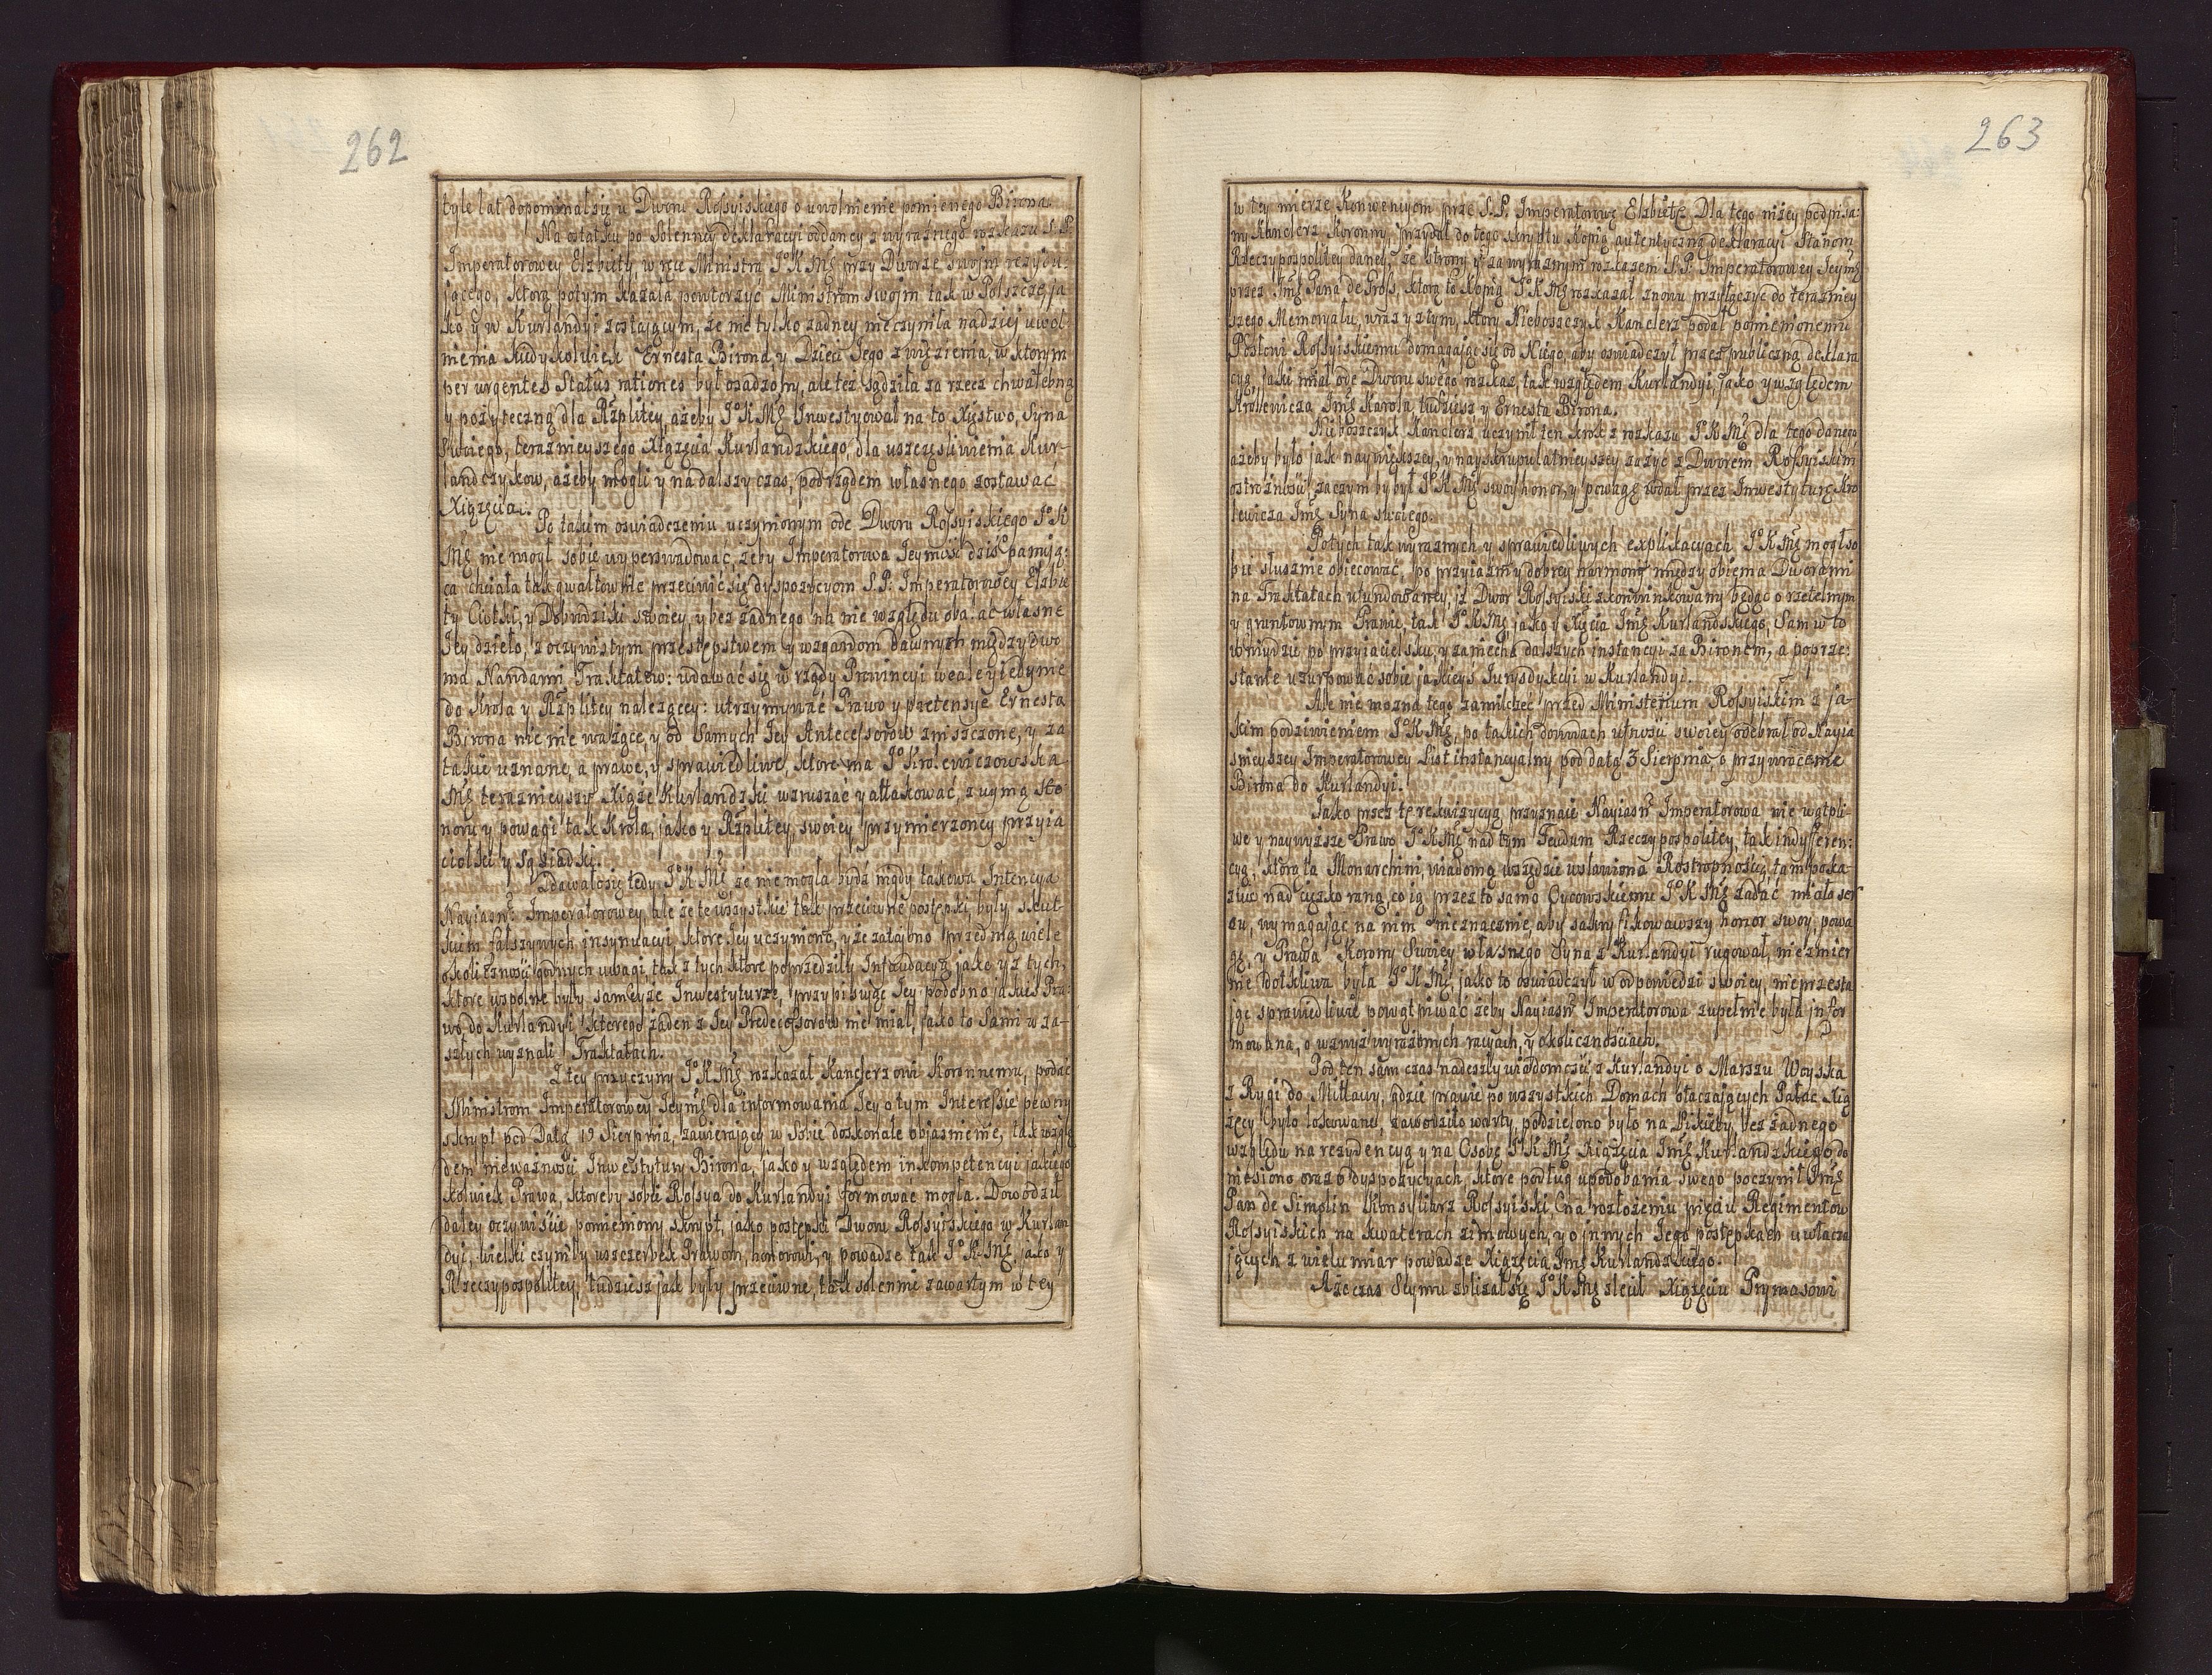 262
tyle lat dopominał się u Dworu Rossyiskiego o uwolnienie pomienego Birona.
Na ostatku po Solenney deklaracyi oddaney z wyraznego rozkazu S. P.
Imperatorowey Elzbiety, w ręce Ministra J° K Mę przy Dworze swoim rezydu:
jącego, którą potym kazała powtorzyć Ministrom swoim tak w Polszcze, ja
ko y w Kurlandyi zostającym, że nie tylko żadney nie czyniła nadziej uwol-
nienia kiedykolwiek Ernesta Birona, y Dzieci Jego z więzienia, w ktorym
per urgentes Status rationes był osadzony, ale też sądziła za rzecz chwalebną
y pożyteczną dla Rzplitey, ażeby J° K Mę Inwestyował na to Xięstwo, Syna
Swoiego, teraznieyszego Xiążęcia Kurlandzkiego, dla uszczęśliwienia Kur-
landczykow, ażeby mogli y na dalszy czas, pod rządem własnego zostawać
Xiążęcia.
Po takim oswiadczeniu uczynionym ode Dworu Rossyiskiego J° K
Mę nie mogł sobie wyperswadować, żeby Imperatorowa Jeymość dziś panują:
ca chciała tak gwałtownie przeciwić się dyspozycyom S. P. Imperatorowey Elżbie
ty Ciotki, y Dobrodziki swoiey, y bez żadnego na nie względu obalać własne
Jey dzieło, z oczywistym przestępstwem y wzgardą dawnych między dwo
ma Narodami Traktatow: udawać się w rządy Prowincyi wcale y iedynie
do Krola y Rzplitey należącey: utrzymywać Prawo y pretensye Ernesta
Birona nic nie ważące, y od Samych Jey Antecessorow zniszczone, y za
takie uznane, a prawe, y sprawiedliwe, ktore ma J° Krolewiczowska
Mę teraznieyszy Xiąże Kurlandzki wzruszać y attakować, z uymą Ho
noru y powagi tak Krola, jako y Rzplitey, swoiey przymierzoney przyia
ciołki y Sąsiadki.
Zdawało się tedy J° K Mę że nie mogła bydź nigdy takowa Intencya
Nayiasń: Imperatorowey, ale że te wszystkie tak przeciwne postępki, były skut-
kiem fałszywych insynuacyi, ktore Jey uczyniono, y że zatajono przed nią wiele
okoliczności godnych uwagi, tak z tych ktore poprzedziły Infeudacyą, jako y z tych,
ktore wspolne były samey że Inwestyturze, przypisując Jey podobno jakieś Pra:
wo do Kurlandyi, ktorego żaden z Jey Predecessorow nie miał, jako to Sami w za-
szłych wyznali Traktatach.
Z tey przyczyny J° K Mę rozkazał Kanclerzowi Koronnemu, podać
Ministrom Imperatorowey Jeymę dla informowania Jey o tym Interessie pewny
skrypt pod Datą 19 Sierpnia, zawierający w Sobie doskonałe objasnienie, tak wzglę
dem nieważności Inwestytury Birona, jako y względem inkompetencyi jakiego
kolwiek Prawa, ktoreby sobie Rossya do Kurlandyi formować mogła. Dowodził
daley oczywiście pomieniony skrypt, jako postępki Dworu Rossyiskiego w Kurlan
dyi, wielki czyniły uszczerbek Prawom, honorowi, y powadze tak J° K Mę, jako y
Rzeczypospolitey, tudziesz jak były przeciwne, tak solennie zawartym w tey
263
w tey mierze Konwencyom prze S. P. Imperatorowę Elzbietę. Dla tego niżey podpisa:
ny Kanclerz Koronny, przydał do tego skryptu Kopią autentyczną deklaracyi Stanom
Rzeczypospolitey daney, ze strony y za wyraznym rozkazem S. P. Imperatorowey Jeymę
przez Jmę Pana de Gross, ktorą to Kopią J° K Mę rozkazał znowu przyłączyć do terazniey
szego Memoryału, wraz y z tym, ktory Nieboszczyk Kanclerz podał pomienionemu
Posłowi Rossyiskiemu domagając się od Niego, aby oswiadczył przez publiczną deklara
cyą, jaki miał ode Dworu swego rozkaz, tak względem Kurlandyi, jako y względem
Krolewicza Jmę Karola, tudziesz y Ernesta Birona.
Nieboszczyk Kanclerz uczynił ten krok z rozkazu J° K Mę dla tego danego,
ażeby było jak naywiększey, y nayskrupulatnieyszey zażyć z Dworem Rossyiskim
ostrożności zaczym by był J° K Mę swoy honor, y powagę wdał przez Inwestyturę Kro
lewicza Jmę Syna swoiego.
Po tych tak wyraznych y sprawiedliwych explikacyach J° K Mę mogł so
bie słusznie obiecować, po przyiazni y dobrey harmonij między obiema Dworami
na Traktatach ufundowaney, iż Dwor Rossyiski zkonwinkowany będąc o rzetelnym
y gruntownym Prawie, tak J° K Mę, jako y Xięcia Jmę Kurlandskiego, Sam w to
wniydzie po przyiacielsku, y zaniecha dalszych instancyi za Bironem, a poprze:
stanie uzurpować sobie jakieyś Jurysdykcyi w Kurlandyi.
Ale nie można tego zamilczeć przed Ministerium Rossyiskim z ja-
kim podziwieniem J° K Mę, po takich dowodach ufności swoiey odebrał od Nayia
snieyszey Imperatorowey List instancyalny pod datą 3 Sierpnia, o przywrocenie
Birona do Kurlandyi.
Jako przez tę rekwizycyą, przyznaie Nayiasń Imperatorowa nie wątpli-
we y naywyższe Prawo J° K Mę nad tym Feudum Rzeczypospolitey, tak indyfferen:
cyą, ktorą ta Monarchini, wiadomą wszędzie wsławiona Rostropnością, tam poka
zuie nad ciężko raną, co ią przez to samo Oycowskiemu J° K Mę zadać miała ser
cu, wymagając na nim nieznacznie, aby sakryfikowawszy honor swoy, powa
gę, y Prawa Korony Swoiey własnego Syna z Kurlandyi rugował, niezmier
nie dotkliwa była J° K Mę, jako to oswiadczył w odpowiedzi swoiey, nie przesta
jąc sprawiedliwie powątpiwać żeby Nayiasń Imperatorowa zupełnie była infor
mowana, o wzwyż wyrażonych racyach, y okolicznościach.
Pod ten sam czas nadeszły wiadomości z Kurlandyi o Marszu Woyska
z Rygi do Mittawy, gdzie prawie po wszystkich Domach otaczaiących Pałac Xią
żęcy było lokowane, zawodziło warty, podzielono było na Pikiety, bez żadnego
względu na rezydencyą y na Osobę J° K Mę Xiążęcia Jmę Kurlandzkiego, do
niesiono oraz o dyspozycyach, ktore podług upodobania swego poczynił Jmę
Pan de Simolin Konsyliarz Rossyiski, na rozłożeniu pięciu Regimentow
Rossyiskich na kwaterach zimowych, y o innych Jego postępkach uwłacza
jących z wielu miar powadze Xiążęcia Jmę Kurlandzkiego.
A że czas Seymu zbliżał się J° K Mę zlecił Xiążęciu Prymasowi